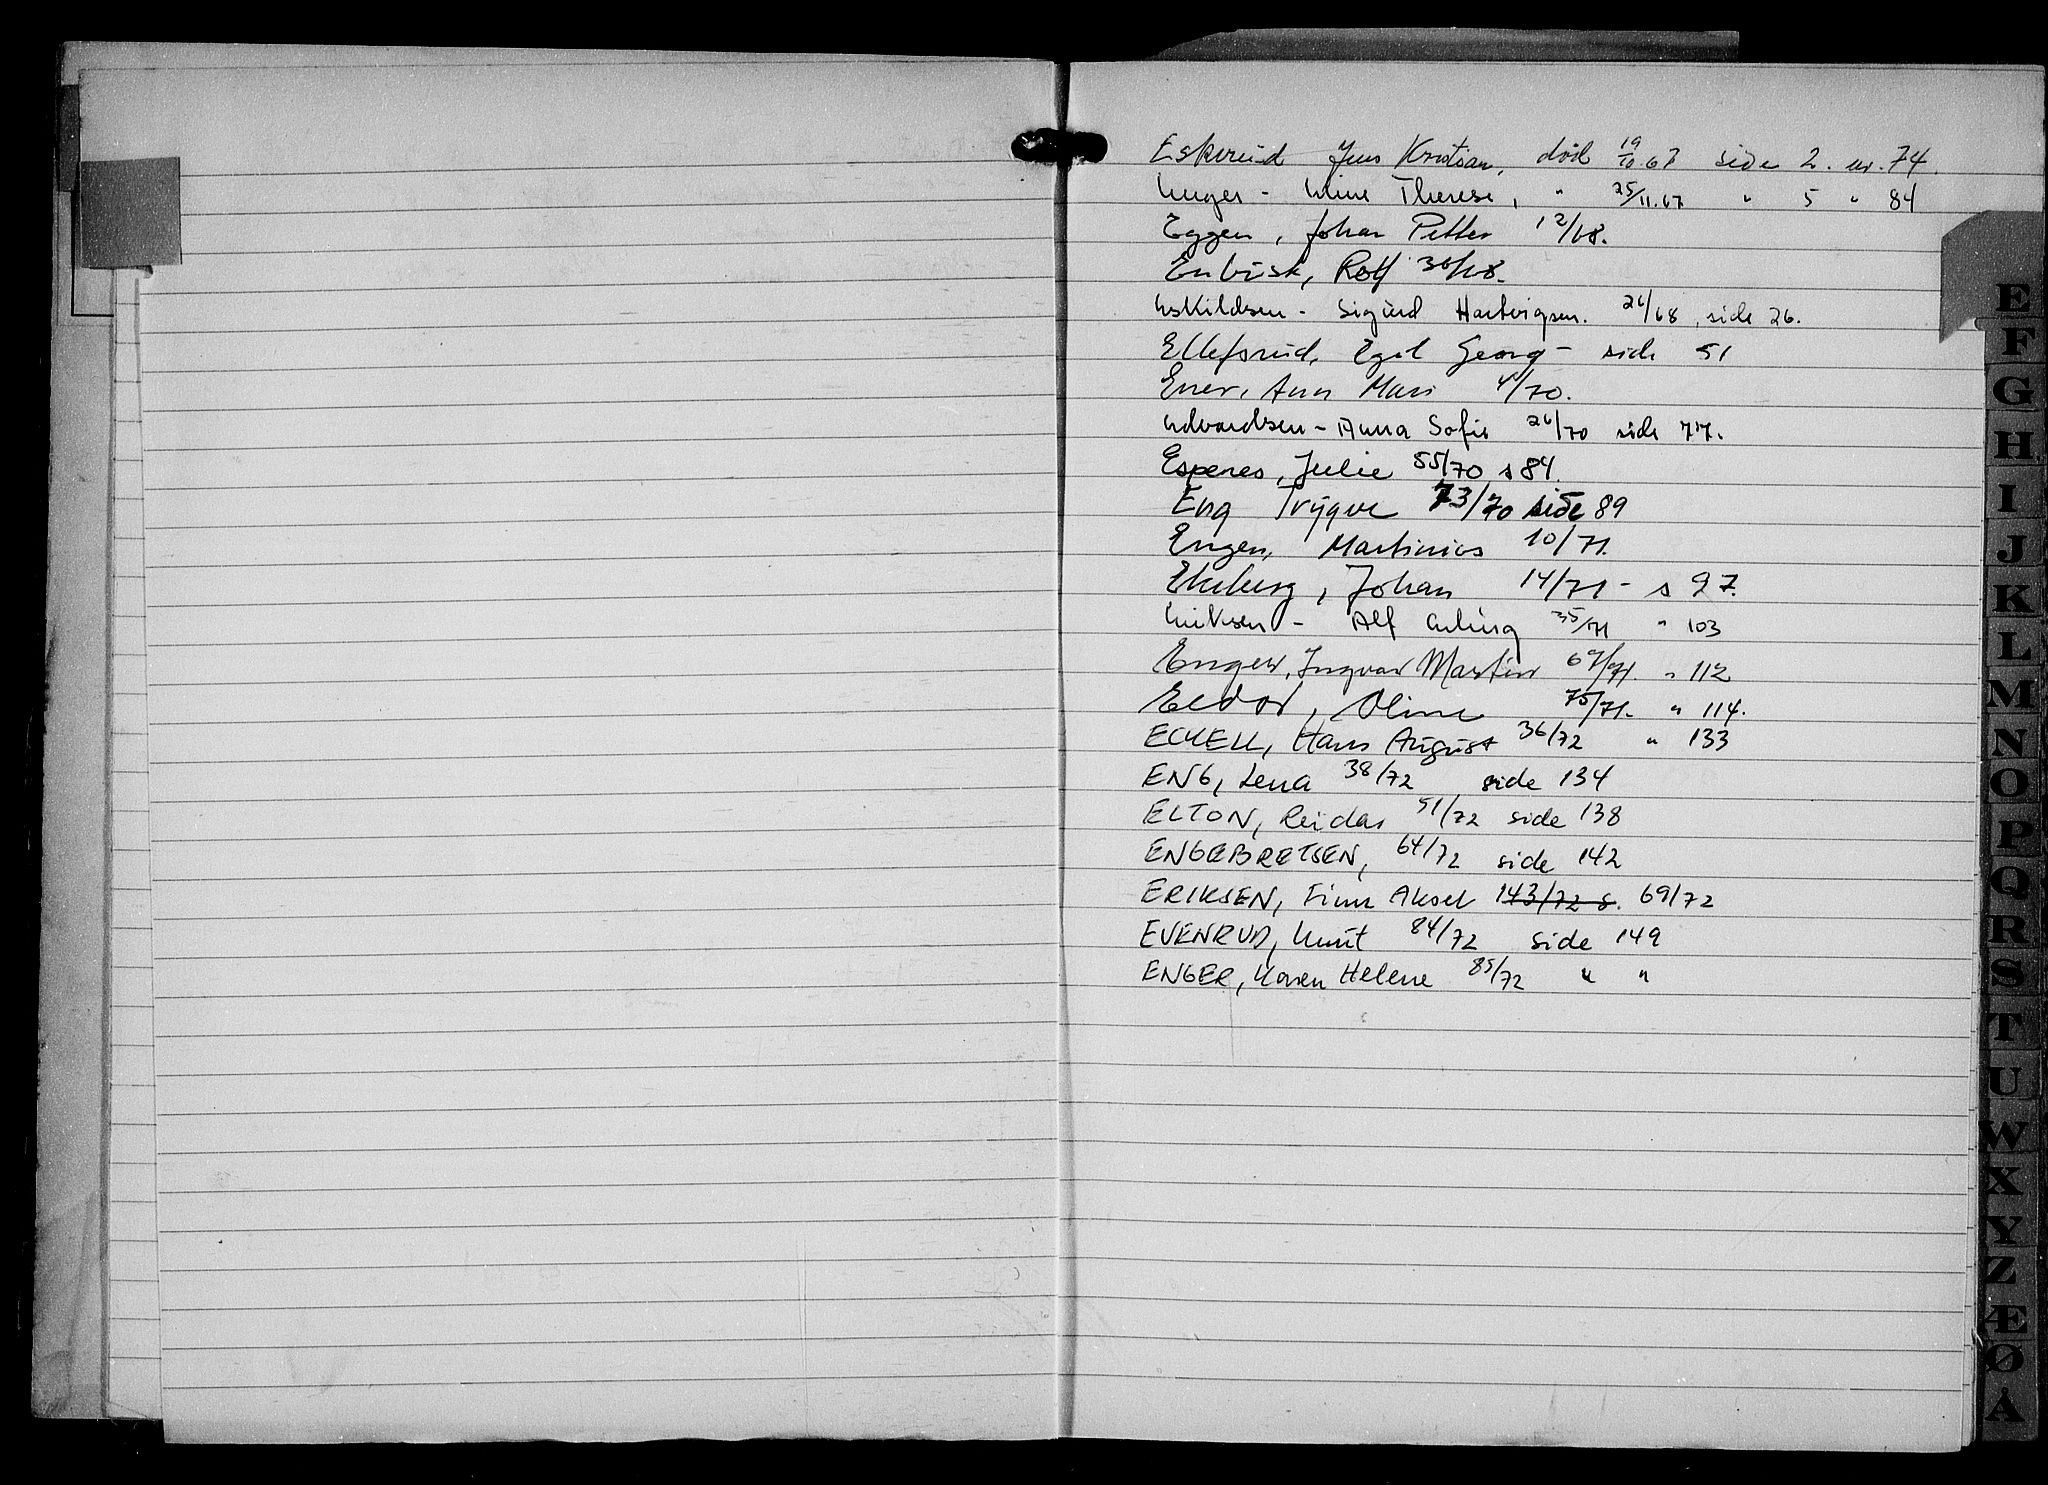 Eskerud Jens Kristian, död 19/10.67 side 2. nr. 74.
Enger - Line Therese, " 25/11.67 " 5 " 84
Eggen, Johan Petter 12/68.
Enbusk, Rolf 36/68.
Eskildsen - Sigurd Hartvigsen. 26/68, side 26.
Ellefsrud, Egil Georg - side 51
Ener, Ann Mari 4/70.
Edvardsen - Anna Sofie 26/70 side 77.
Esperes, Julie 55/70 s 84.
Eng Trygve 73/70 side 89
Engen, Martinius 10/71.
Ekeberg, Johan 14/71 - s 97.
Eriksen - Alf Erling 35/71 " 103
Enger, Ingvar Martin 67/71. " 112
Eldor, Oline 75/71. " 114.
ECKELL, Hans August 36/72 " 133
ENG, Lena 38/72 side 134
ELTON, Reidar 51/72 side 138
ENGEBRETSEN, 64/72 side 142
ERIKSEN, Finn Aksel 143/72 s. 69/72
EVENRUD, Knut 84/72 side 149
ENGER, Karen Helene 85/72 " "
E
F
G
H
I
J
K
L
M
N
O
P
Q
R
S
T
U
W
X
Y
Z
Æ
Ø
Å